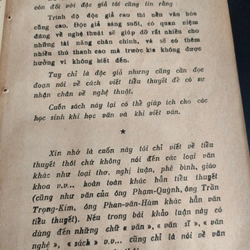 còn đối với độc giả tôi cũng tin rằng :
Trình độ độc giả cao thì nền văn hóa
cũng cao. Độc giả sáng suốt, có quan niệm
đúng về nghệ thuật sẽ giúp đỡ rất nhiều cho
những tài năng chân chính, và sẽ có thêm
nhiều thú thanh cao mà trước kia không được
hưởng vì không biết đến.
Tuy chỉ là độc giả nhưng cũng cần đọc
đoạn nói về cách viết tiểu thuyết để có sự
nhận chân về nghệ thuật.
Cuốn sách này lại có thể giúp ích cho các
học sinh khi học văn và khi viết văn.
*
Xin nhớ là cuốn này tôi chỉ viết về tiểu
thuyết thôi chứ không nói đến các loại văn
khác như loại thơ, nghị luận, phê bình, giáo
khoa v.v... hoàn toàn khác hẳn tiểu thuyết
(cũng như văn của ông Phạm-Quỳnh, ông Trần
Trọng-Kim, ông Phan-văn-Hùm khác hẳn văn
tiểu thuyết). Nếu trong bài khảo luận này có
dùng đến những chữ « văn », « văn sĩ », « văn
nghệ », « sách » v.v... cũng chỉ là nói về văn